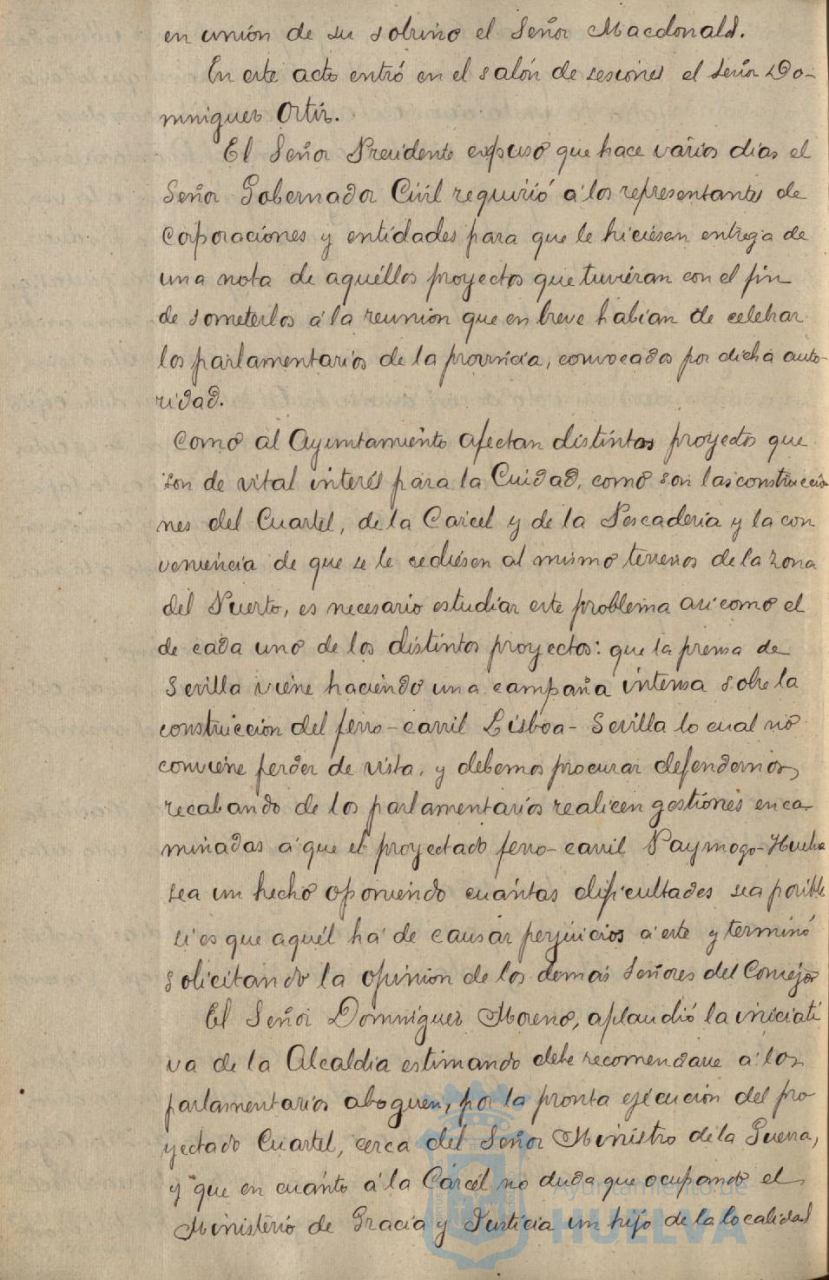 en unión de su sobrino el Señor Macdonald.
En este acto entró en el salón de sesiones el Señor Do-
minguez Ortiz.
El Señor Presidente expuso que hace varios dias el
Señor Gobernador Civil requirió á los representantes de
Corporaciones y entidades para que le hiciesen entrega de
una nota de aquéllos proyectos que tuvieran con el fin
de someterlos á la reunión que en breve habian de celebrar
los parlamentarios de la provincia, convocados por dicha auto-
ridad.
Como al Ayuntamiento afectan distintos proyectos que
son de vital interés para la Cuidad, como son las construccio
nes del Cuartel, de la Carcel y de la Pescaderia y la con
veniencia de que se le cediesen al mismo terrenos de la zona
del Puerto, es necesario estudiar este problema asi como el
de cada uno de los distintos proyectos: que la prensa de
Sevilla viene haciendo una campaña intensa sobre la
construcción del ferro-carril Lisboa-Sevilla lo cual no
conviene perder de vista, y debemos procurar defendernos,
recabando de los parlamentarios realicen gestiones enca
minadas á que el proyectado ferro-carril Paymogo-Huelva
sea un hecho oponiendo cuántas dificultades sea posible
si es que aquél há de causar perjuicios á este y terminó
solicitando la opinión de los demás Señores del Concejo
El Señor Dominguez Moreno, aplaudió la iniciati
va de la Alcaldia estimando debe recomendarse á los
parlamentarios aboguen, por la pronta ejecución del pro
yectado Cuartel, cerca del Señor Ministro de la Guerra,
y que en cuánto á la Cárcel no duda que ocupando el
Ministerio de Gracia y Justicia un hijo de la localidad
Ayuntamiento de
HUELVA